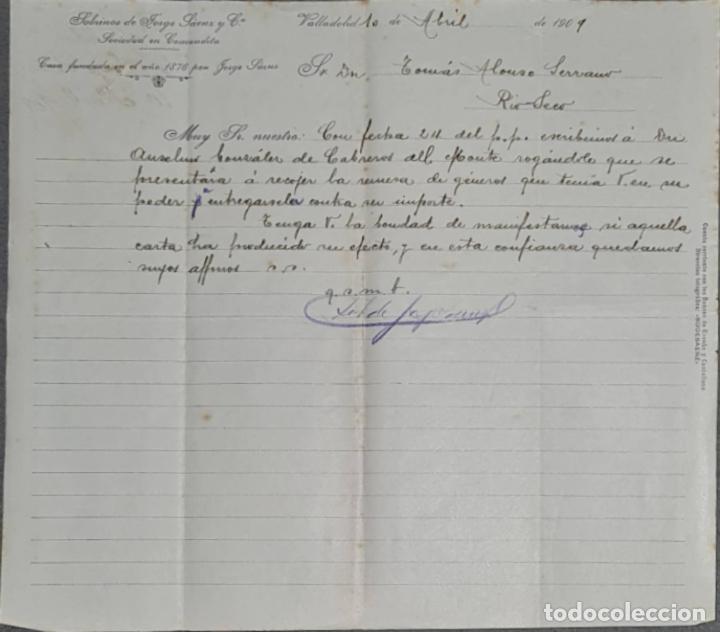 Sobrinos de Jorge Sáenz y Cª
Sociedad en Comandita
Casa fundada en el año 1876 por Jorge Sáenz
Valladolid 10 de Abril de 1909
Sr. Dn. Tomás Alonso Serrano
Rio-Seco
Muy Sr. nuestro: Con fecha 24 del p.p. escribimos á Dn
Anselmo González de Cabreros del Monte rogándole que se
presentára á recojer la remesa de géneros que tenia V. en su
poder y entregarsela contra su importe.
Tenga V. la bondad de manifestarnos si aquella
carta ha producido su efecto, y en esta confianza quedamos
suyos affmos s.s.
q.s.m.b.
Sob de
Cuenta corriente con los Bancos de España y Castellano
Dirección telegráfica:
todocoleccion